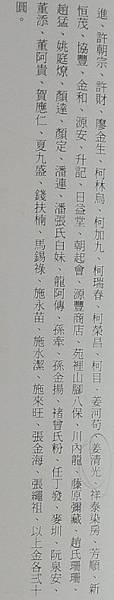 進、許朝宗、許財、廖金生、柯林烏、柯加九、柯瑞春、柯榮昌、柯目、姜河苟、姜清光、祥泰染房、芳順、新
恒茂、協豐、金和、源安、升記、日益堂、朝起會、源豐商店、苑裡山腳八保、川內龍、藤原彌藏、趙氏珊珊、
趙猛、姚庭燎、顏達、顏定、潘連、潘張氏白妹、龍阿傳、孫牽、孫金揚、褚曾氏粉、任丁發、麥圳、阮泉安、
董添、董阿貴、賀應仁、夏九盛、錢扶楠、馬錫祿、施永苗、施水潔、施來旺、張金海、張繩祖、以上金各弍十
圓。